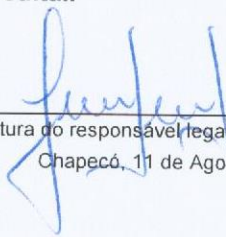 tura do responsável lega
Chapecó, 11 de Ago